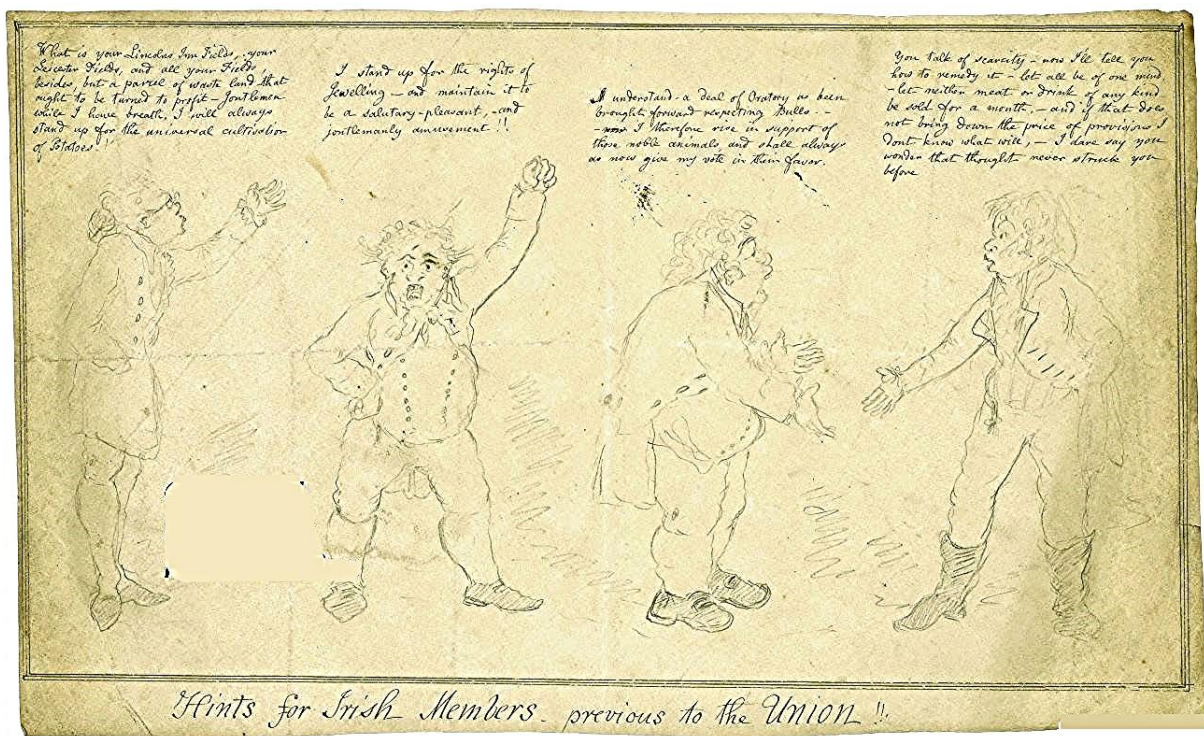 What is your Lincolns Inn Fields, your
Leicester Fields, and all your Fields
besides, but a parcel of waste land that
ought to be turned to profit - Jontlemen
while I have breath, I will always
stand up for the universal cultivation
of Potatoes!!
I stand up for the rights of
Jewelling - and maintain it to
be a salutary-pleasant, - and
jontlemanly amusement!!
I understand - a deal of Oratory as been
brought forward respecting Bulls. -
- now I therefore rise in support of
those noble animals, and shall always
as now give my vote in their favor.
You talk of scarcity - now I'll tell you
how to remedy it - let all be of one mind
- let neither meat or drink of any kind
be sold for a month, - and if that does
not bring down the price of provisions I
dont know what will, - I dare say you
wonder that thought never struck you
before
Hints for Irish Members - previous to the Union!!